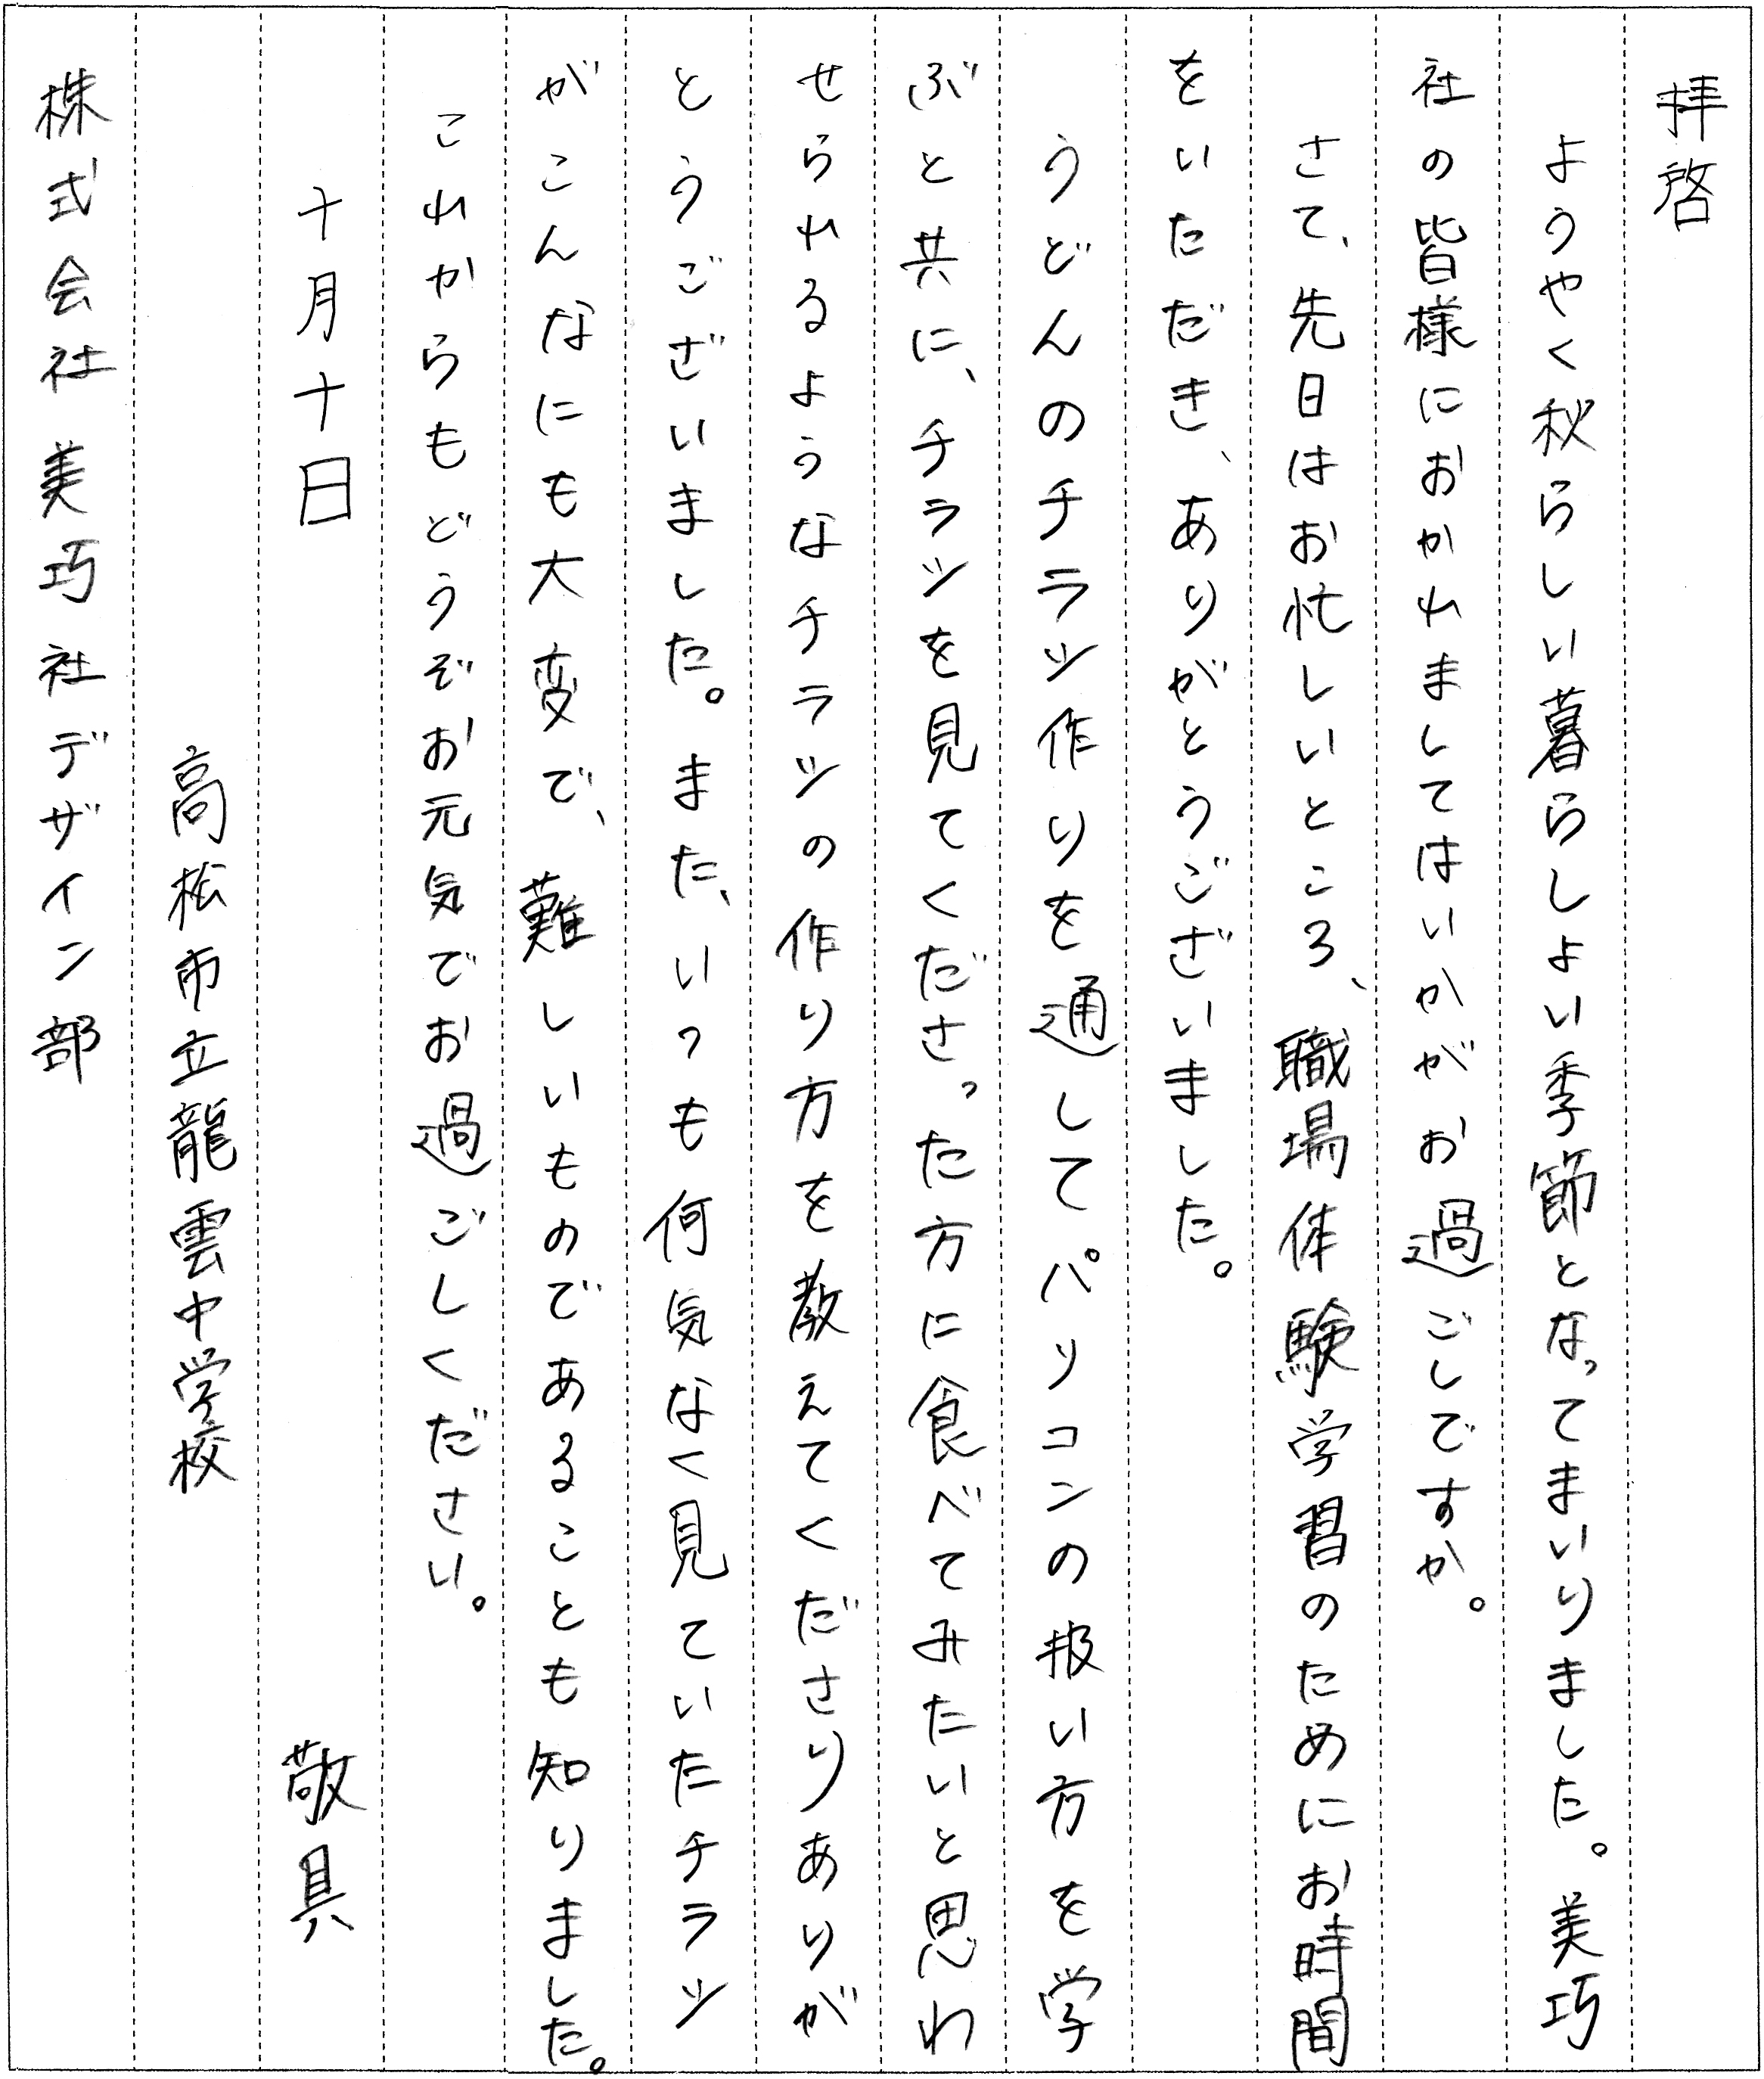 拝啓
ようやく秋らしい暮らしよい季節となってまいりました。美巧
社の皆様におかれましてはいかがお過ごしですか。
さて、先日はお忙しいところ、職場体験学習のためにお時間
をいただき、ありがとうございました。
うどんのチラシ作りを通してパソコンの扱い方を学
ぶと共に、チラシを見てくださった方に食べてみたいと思わ
せられるようなチラシの作り方を教えてくださりありが
とうございました。また、いつも何気なく見ていたチラシ
がこんなにも大変で、難しいものであることも知りました。
これからもどうぞお元気でお過ごしください。
十月十日 敬具
高松市立龍雲中学校
株式会社美巧社デザイン部